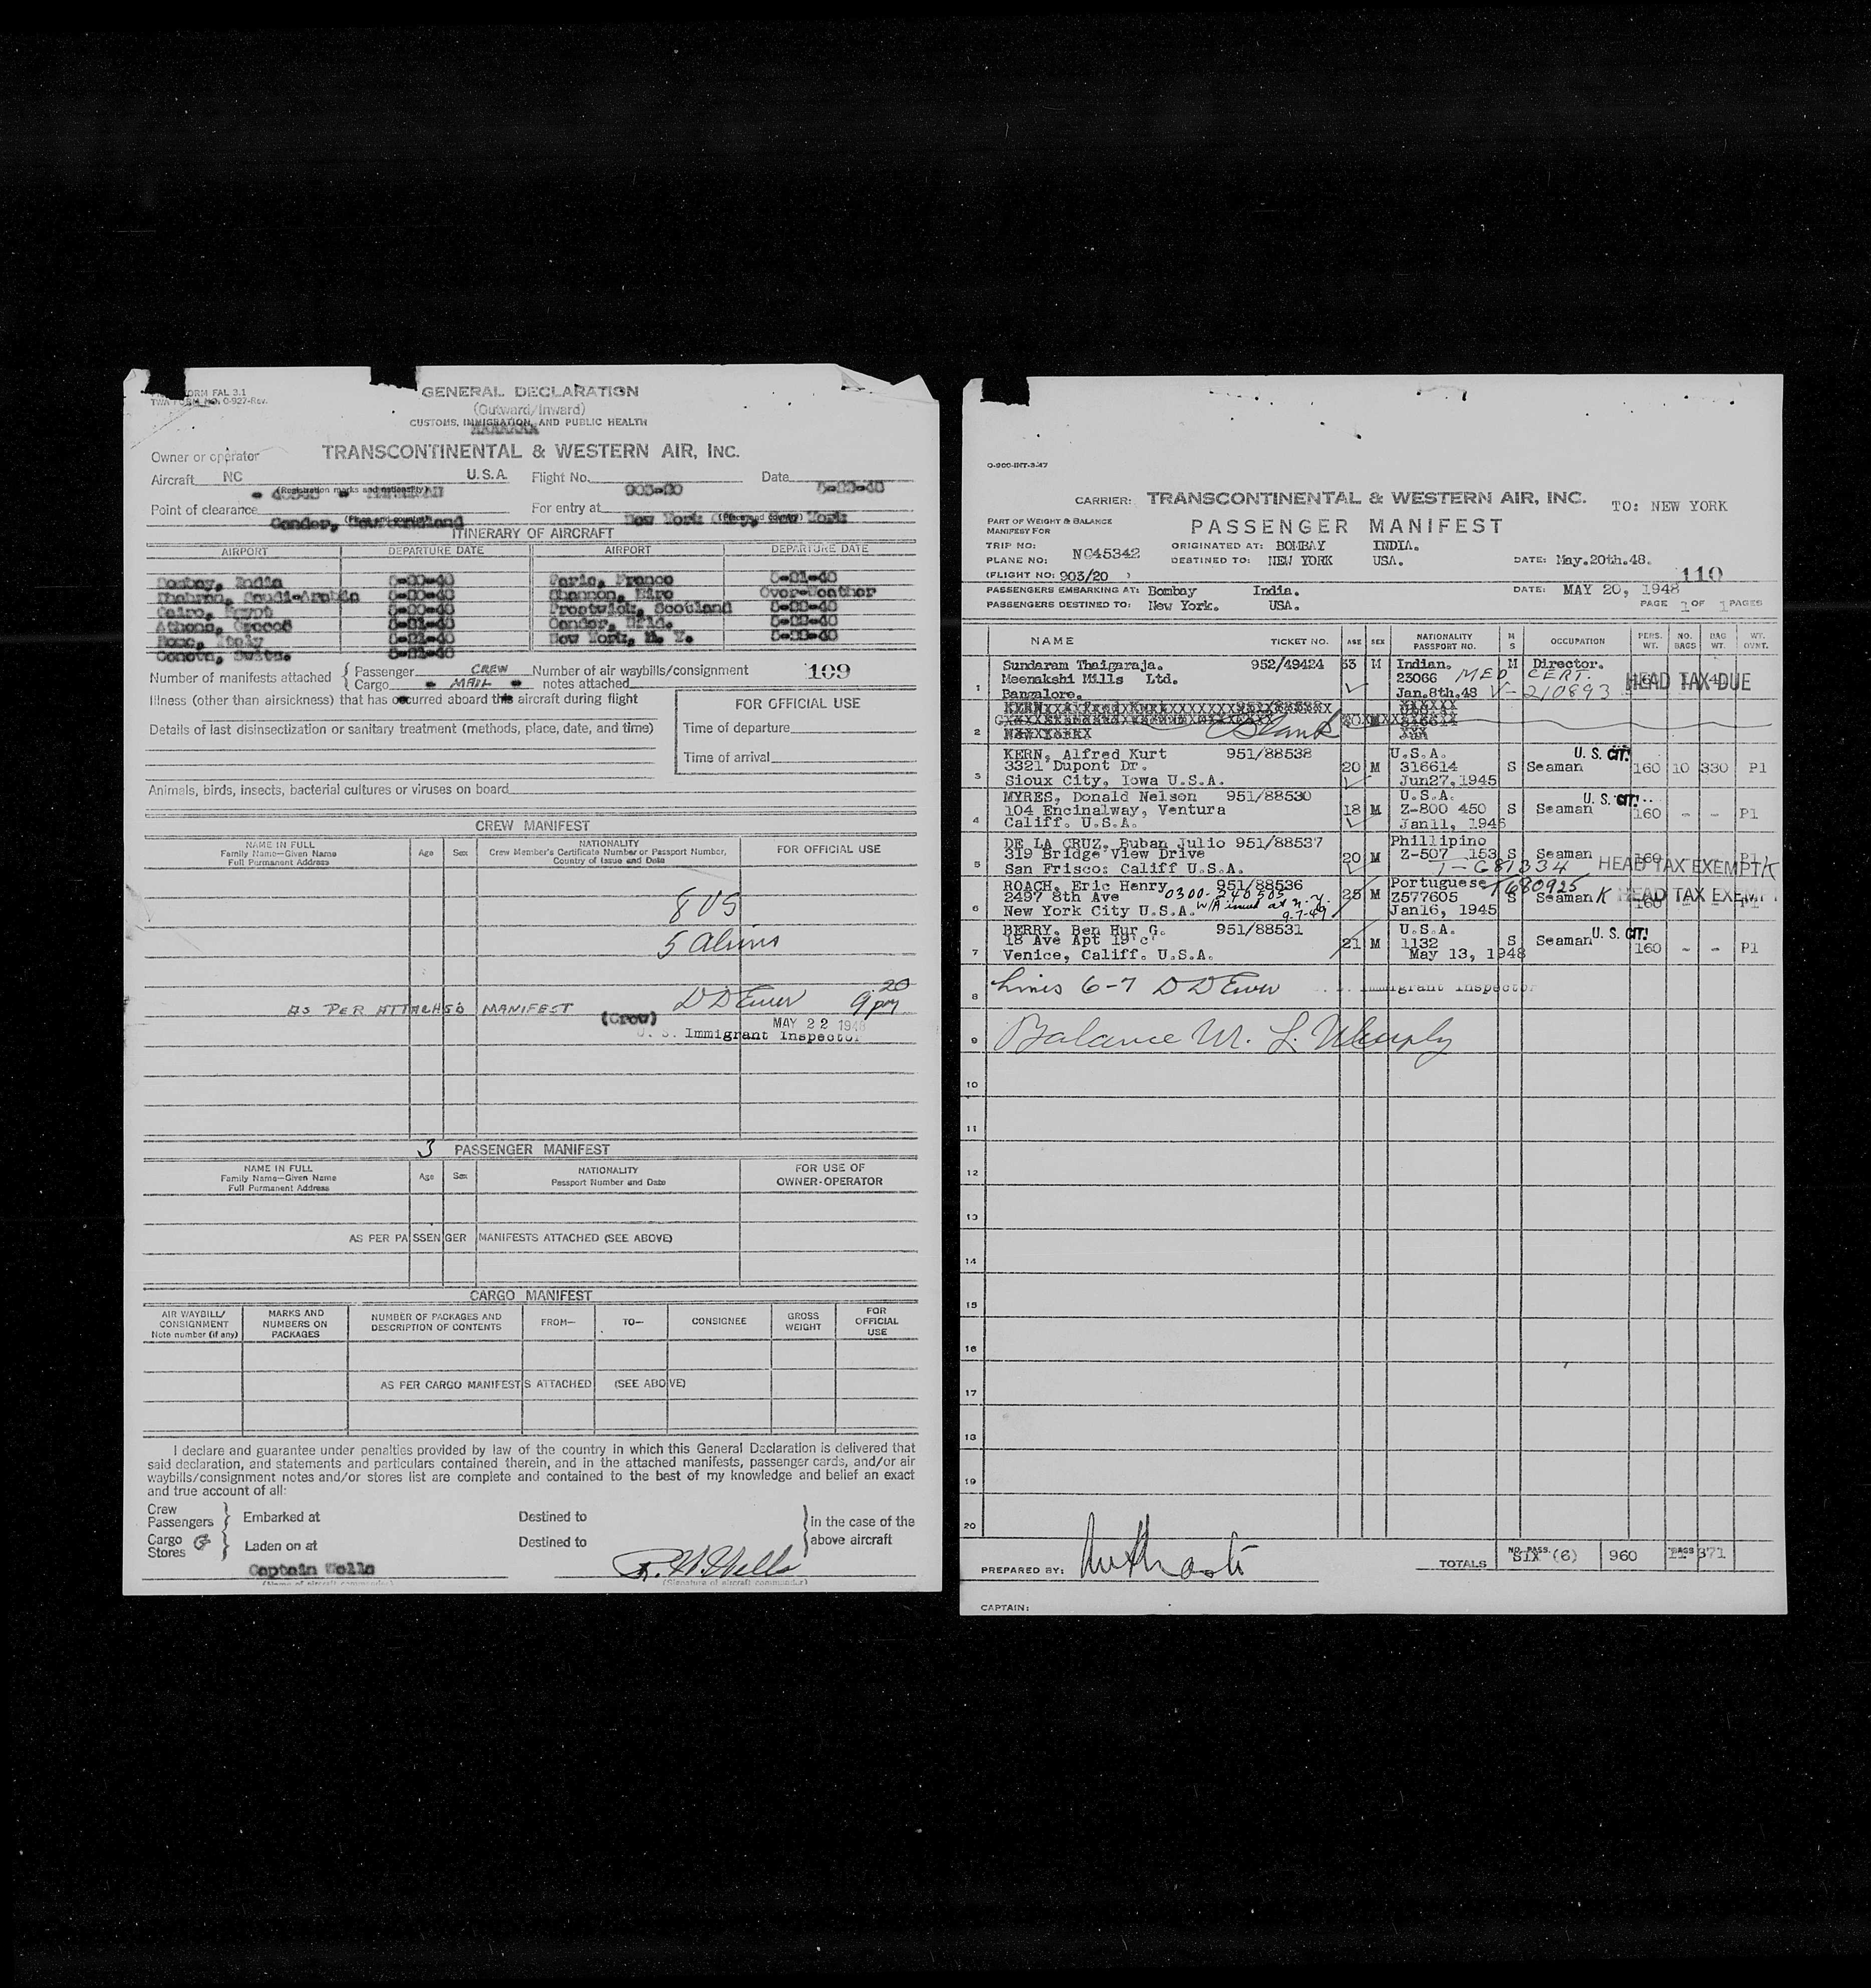 ORM FAL 3.1
TWA FORM NO. O-927-Rev.
GENERAL DECLARATION
(Outward/Inward)
CUSTOMS, IMMIGRATION, AND PUBLIC HEALTH
Owner or operator TRANSCONTINENTAL & WESTERN AIR, INC.
Aircraft NC U.S.A. Flight No. 903-20 Date
(Registration marks and nationality)
Point of clearance Gander, Newfoundland For entry at New York York
(Place and country) (Place and country)
ITINERARY OF AIRCRAFT
AIRPORT DEPARTURE DATE AIRPORT DEPARTURE DATE
Bombay, India 5-20-48 Paris, France 5-21-48
Dhahran, Saudi-Arabia 5-20-48 Shannon, Eire Over-Weather
Cairo, Egypt 5-20-48 Prestwick, Scotland 5-22-48
Athens, Greece 5-21-48 Gander, Nfld. 5-22-48
Rome, Italy 5-21-48 New York, N. Y. 5-22-48
Geneva, Switz. 5-21-48
Number of manifests attached { Passenger CREW Number of air waybills/consignment 109
Cargo MAIL notes attached
Illness (other than airsickness) that has occurred aboard this aircraft during flight
FOR OFFICIAL USE
Details of last disinsectization or sanitary treatment (methods, place, date, and time)
Time of departure
Time of arrival
Animals, birds, insects, bacterial cultures or viruses on board
CREW MANIFEST
NAME IN FULL
Family Name—Given Name
Full Permanent Address
Age Sex
NATIONALITY
Crew Member's Certificate Number or Passport Number,
Country of Issue and Date
FOR OFFICIAL USE
8 US
5 aliens
AS PER ATTACHED MANIFEST
(Crew)
9 20 pm
MAY 22 1948
U. S. Immigrant Inspector
3 PASSENGER MANIFEST
NAME IN FULL
Family Name—Given Name
Full Permanent Address
Age Sex
NATIONALITY
Passport Number and Date
FOR USE OF
OWNER-OPERATOR
AS PER PASSENGER MANIFESTS ATTACHED (SEE ABOVE)
CARGO MANIFEST
AIR WAYBILL/
CONSIGNMENT
Note number (if any)
MARKS AND
NUMBERS ON
PACKAGES
NUMBER OF PACKAGES AND
DESCRIPTION OF CONTENTS
FROM— TO— CONSIGNEE
GROSS
WEIGHT
FOR
OFFICIAL
USE
AS PER CARGO MANIFESTS ATTACHED (SEE ABOVE)
I declare and guarantee under penalties provided by law of the country in which this General Declaration is delivered that
said declaration, and statements and particulars contained therein, and in the attached manifests, passenger cards, and/or air
waybills/consignment notes and/or stores list are complete and contained to the best of my knowledge and belief an exact
and true account of all:
Crew
Passengers } Embarked at Destined to } in the case of the
Cargo
Stores } Laden on at Destined to above aircraft
Captain Wells
(Name of aircraft commander) (Signature of aircraft commander)
O-900-INT-3-47
CARRIER: TRANSCONTINENTAL & WESTERN AIR, INC. TO: NEW YORK
PART OF WEIGHT & BALANCE
MANIFEST FOR
PASSENGER MANIFEST
TRIP NO: ORIGINATED AT: BOMBAY INDIA.
PLANE NO: NC45342 DESTINED TO: NEW YORK USA. DATE: May.20th.48.
(FLIGHT NO: 903/20 ) 110
PASSENGERS EMBARKING AT: Bombay India. DATE: MAY 20, 1948
PASSENGERS DESTINED TO: New York. USA. PAGE 1 OF 1 PAGES
NAME TICKET NO. AGE SEX NATIONALITY PASSPORT NO. M S OCCUPATION PERS. WT. NO. BAGS BAG WT. WT. OVNT.
1 Sundaram Thaigaraja. 952/49424 53 M Indian. M Director.
Meenakshi Mills Ltd. 23066 MED CERT. HEAD TAX DUE
Bangalore. Jan.8th.48 V-210893
2 Blank
KERN, Alfred Kurt 951/88538 U.S.A. U. S. CIT.
3 3321 Dupont Dr. 20 M 316614 S Seaman 160 10 330 P1
Sioux City, Iowa U.S.A. Jun27.1945
MYRES, Donald Nelson 951/88530 U.S.A. U. S. CIT.
4 104 Encinalway, Ventura 18 M Z-800 450 S Seaman 160 - - P1
Califf. U.S.A. Jan11, 1946
DE LA CRUZ, Ruban Julio 951/88537 Phillipino
5 319 Bridge View Drive 20 M Z-507 153 S Seaman 160 HEAD TAX EXEMPT K
San Frisco: Califf U.S.A.
ROACH, Eric Henry 951/88536 Portuguese
6 2497 8th Ave 0300- 25 M Z577605 S Seaman K 160 HEAD TAX EXEMPT
New York City U.S.A. W/A issued at N.Y. Jan16, 1945
BERRY, Ben Hur G. 951/88531 U.S.A. U. S. CIT.
7 18 Ave Apt 19'c' 21 M 1132 S Seaman 160 - - P1
Venice, Califf. U.S.A. May 13, 1948
8 Lines 6-7 Immigrant Inspector
9 Balance
10
11
12
13
14
15
16
17
18
19
20
PREPARED BY: TOTALS NO. PASS. SIX (6) 960 BAGS 11 371
CAPTAIN: